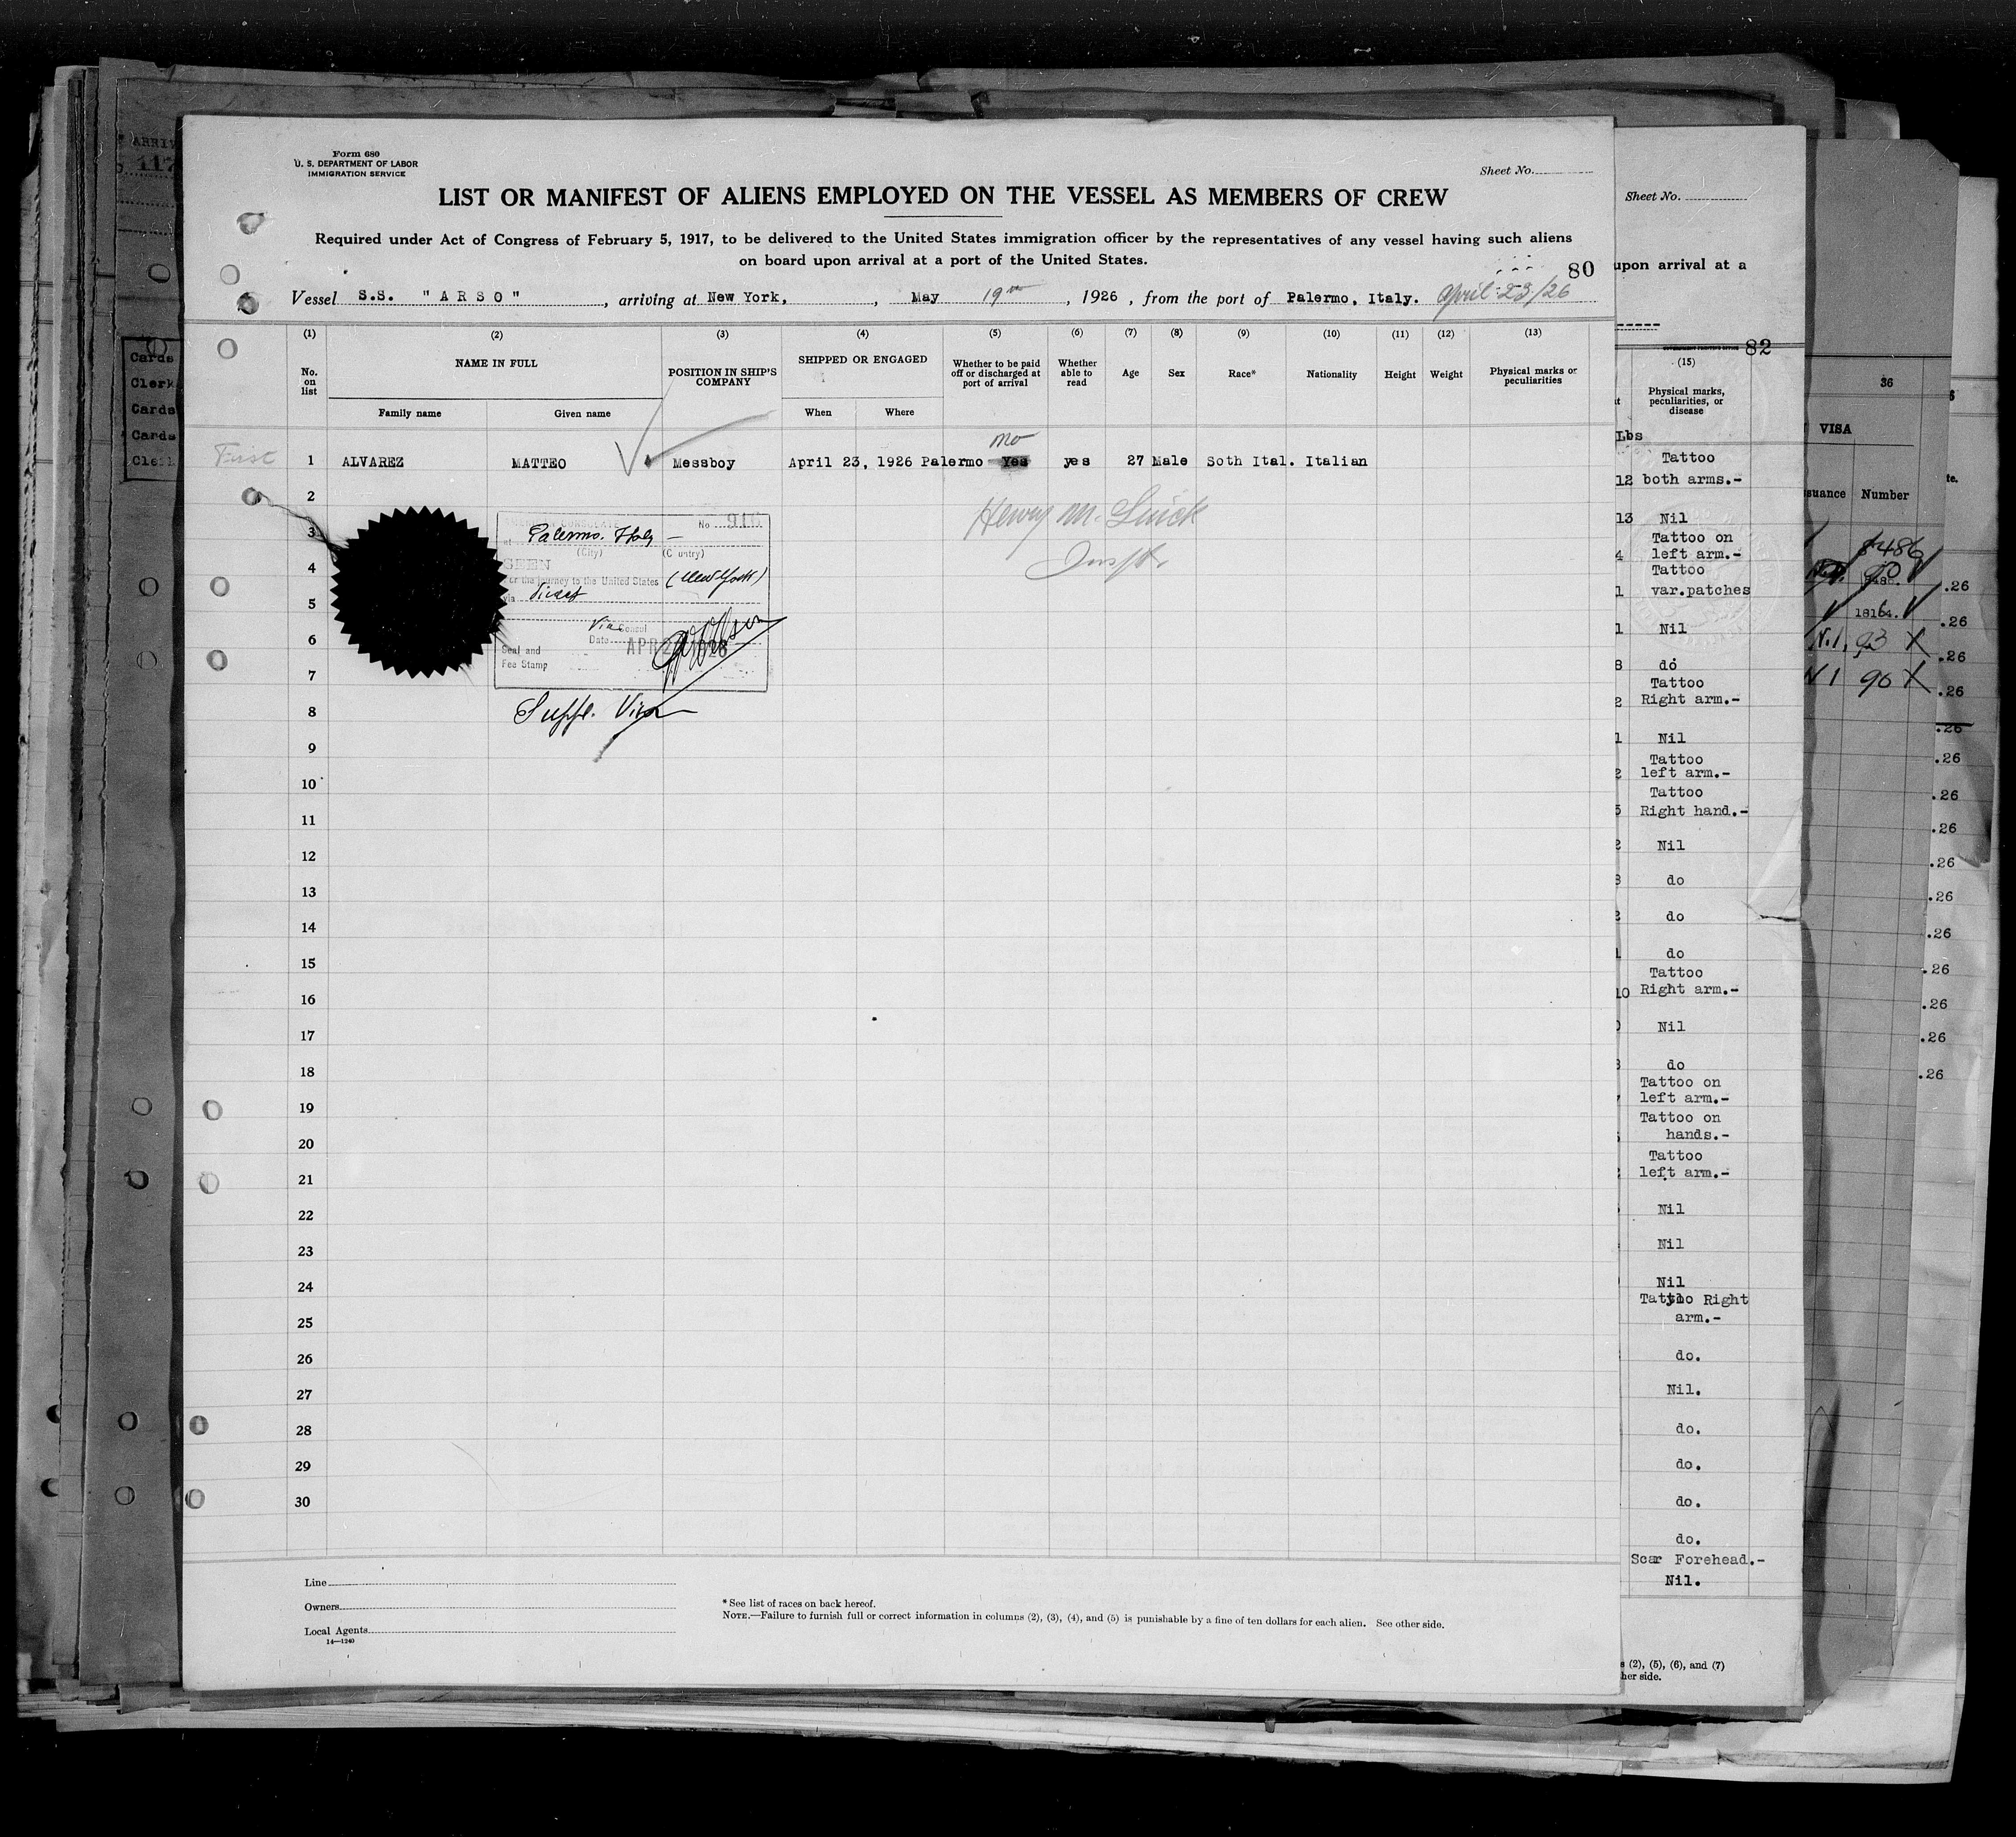 Form 680
U. S. DEPARTMENT OF LABOR
IMMIGRATION SERVICE
Sheet No.
LIST OR MANIFEST OF ALIENS EMPLOYED ON THE VESSEL AS MEMBERS OF CREW
Required under Act of Congress of February 5, 1917, to be delivered to the United States immigration officer by the representatives of any vessel having such aliens
on board upon arrival at a port of the United States.
80
Vessel S.S. "ARSO", arriving at New York, May 19th, 1926, from the port of Palermo, Italy. April 23/26
(1) (2) (3) (4) (5) (6) (7) (8) (9) (10) (11) (12) (13)
No. on list
NAME IN FULL
Family name
Given name
POSITION IN SHIP'S COMPANY
SHIPPED OR ENGAGED
When
Where
Whether to be paid off or discharged at port of arrival
Whether able to read
Age
Sex
Race*
Nationality
Height
Weight
Physical marks or peculiarities
no
First 1 ALVAREZ MATTEO Messboy April 23, 1926 Palermo Yes yes 27 Male Soth Ital. Italian
2
3
4
5
6
7
8
9
10
11
12
13
14
15
16
17
18
19
20
21
22
23
24
25
26
27
28
29
30
No
at Palermo. Italy
(City) (Country)
SEEN
For the journey to the United States (New York)
via Direct
Consul
Date APR
Seal and
Fee Stamp
Suppl. Visa
Henry M.
Insptr.
Line
Owners
Local Agents
14—1240
* See list of races on back hereof.
NOTE.—Failure to furnish full or correct information in columns (2), (3), (4), and (5) is punishable by a fine of ten dollars for each alien. See other side.
Sheet No.
upon arrival at a
82
(15)
Physical marks, peculiarities, or disease
Lbs
Tattoo
12 both arms.-
13 Nil
Tattoo on
left arm.-
Tattoo
var.patches
Nil
do
Tattoo
Right arm.-
Nil
Tattoo
left arm.-
Tattoo
Right hand.-
Nil
do
do
do
Tattoo
10 Right arm.-
Nil
do
Tattoo on
left arm.-
Tattoo on
hands.-
Tattoo
left arm.-
Nil
Nil
Nil
Tattoo Right
arm.-
do.
Nil.
do.
do.
do.
do.
Scar Forehead.-
Nil.
(2), (5), (6), and (7)
her side.
36
VISA
suance Number
18164.
N.I. 93 X
N I 90 X
.26
.26
.26
.26
.26
.26
.26
.26
.26
.26
.26
.26
.26
.26
.26
ARRIV
117
Cards
Clerk
Cards
Cards
Clerk